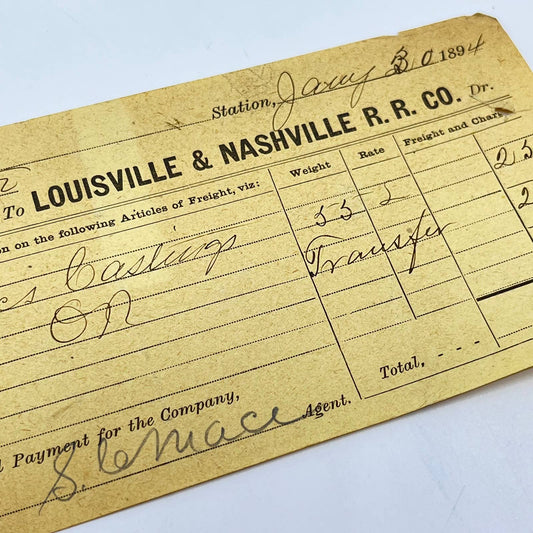 Station, Jany 30 1894
To LOUISVILLE & NASHVILLE R. R. CO. Dr.
on on the following Articles of Freight, viz:
Weight
Rate
Freight and Charg
Castings
55
25
Transfer
2
ON
Total, - - -
Payment for the Company,
Agent.